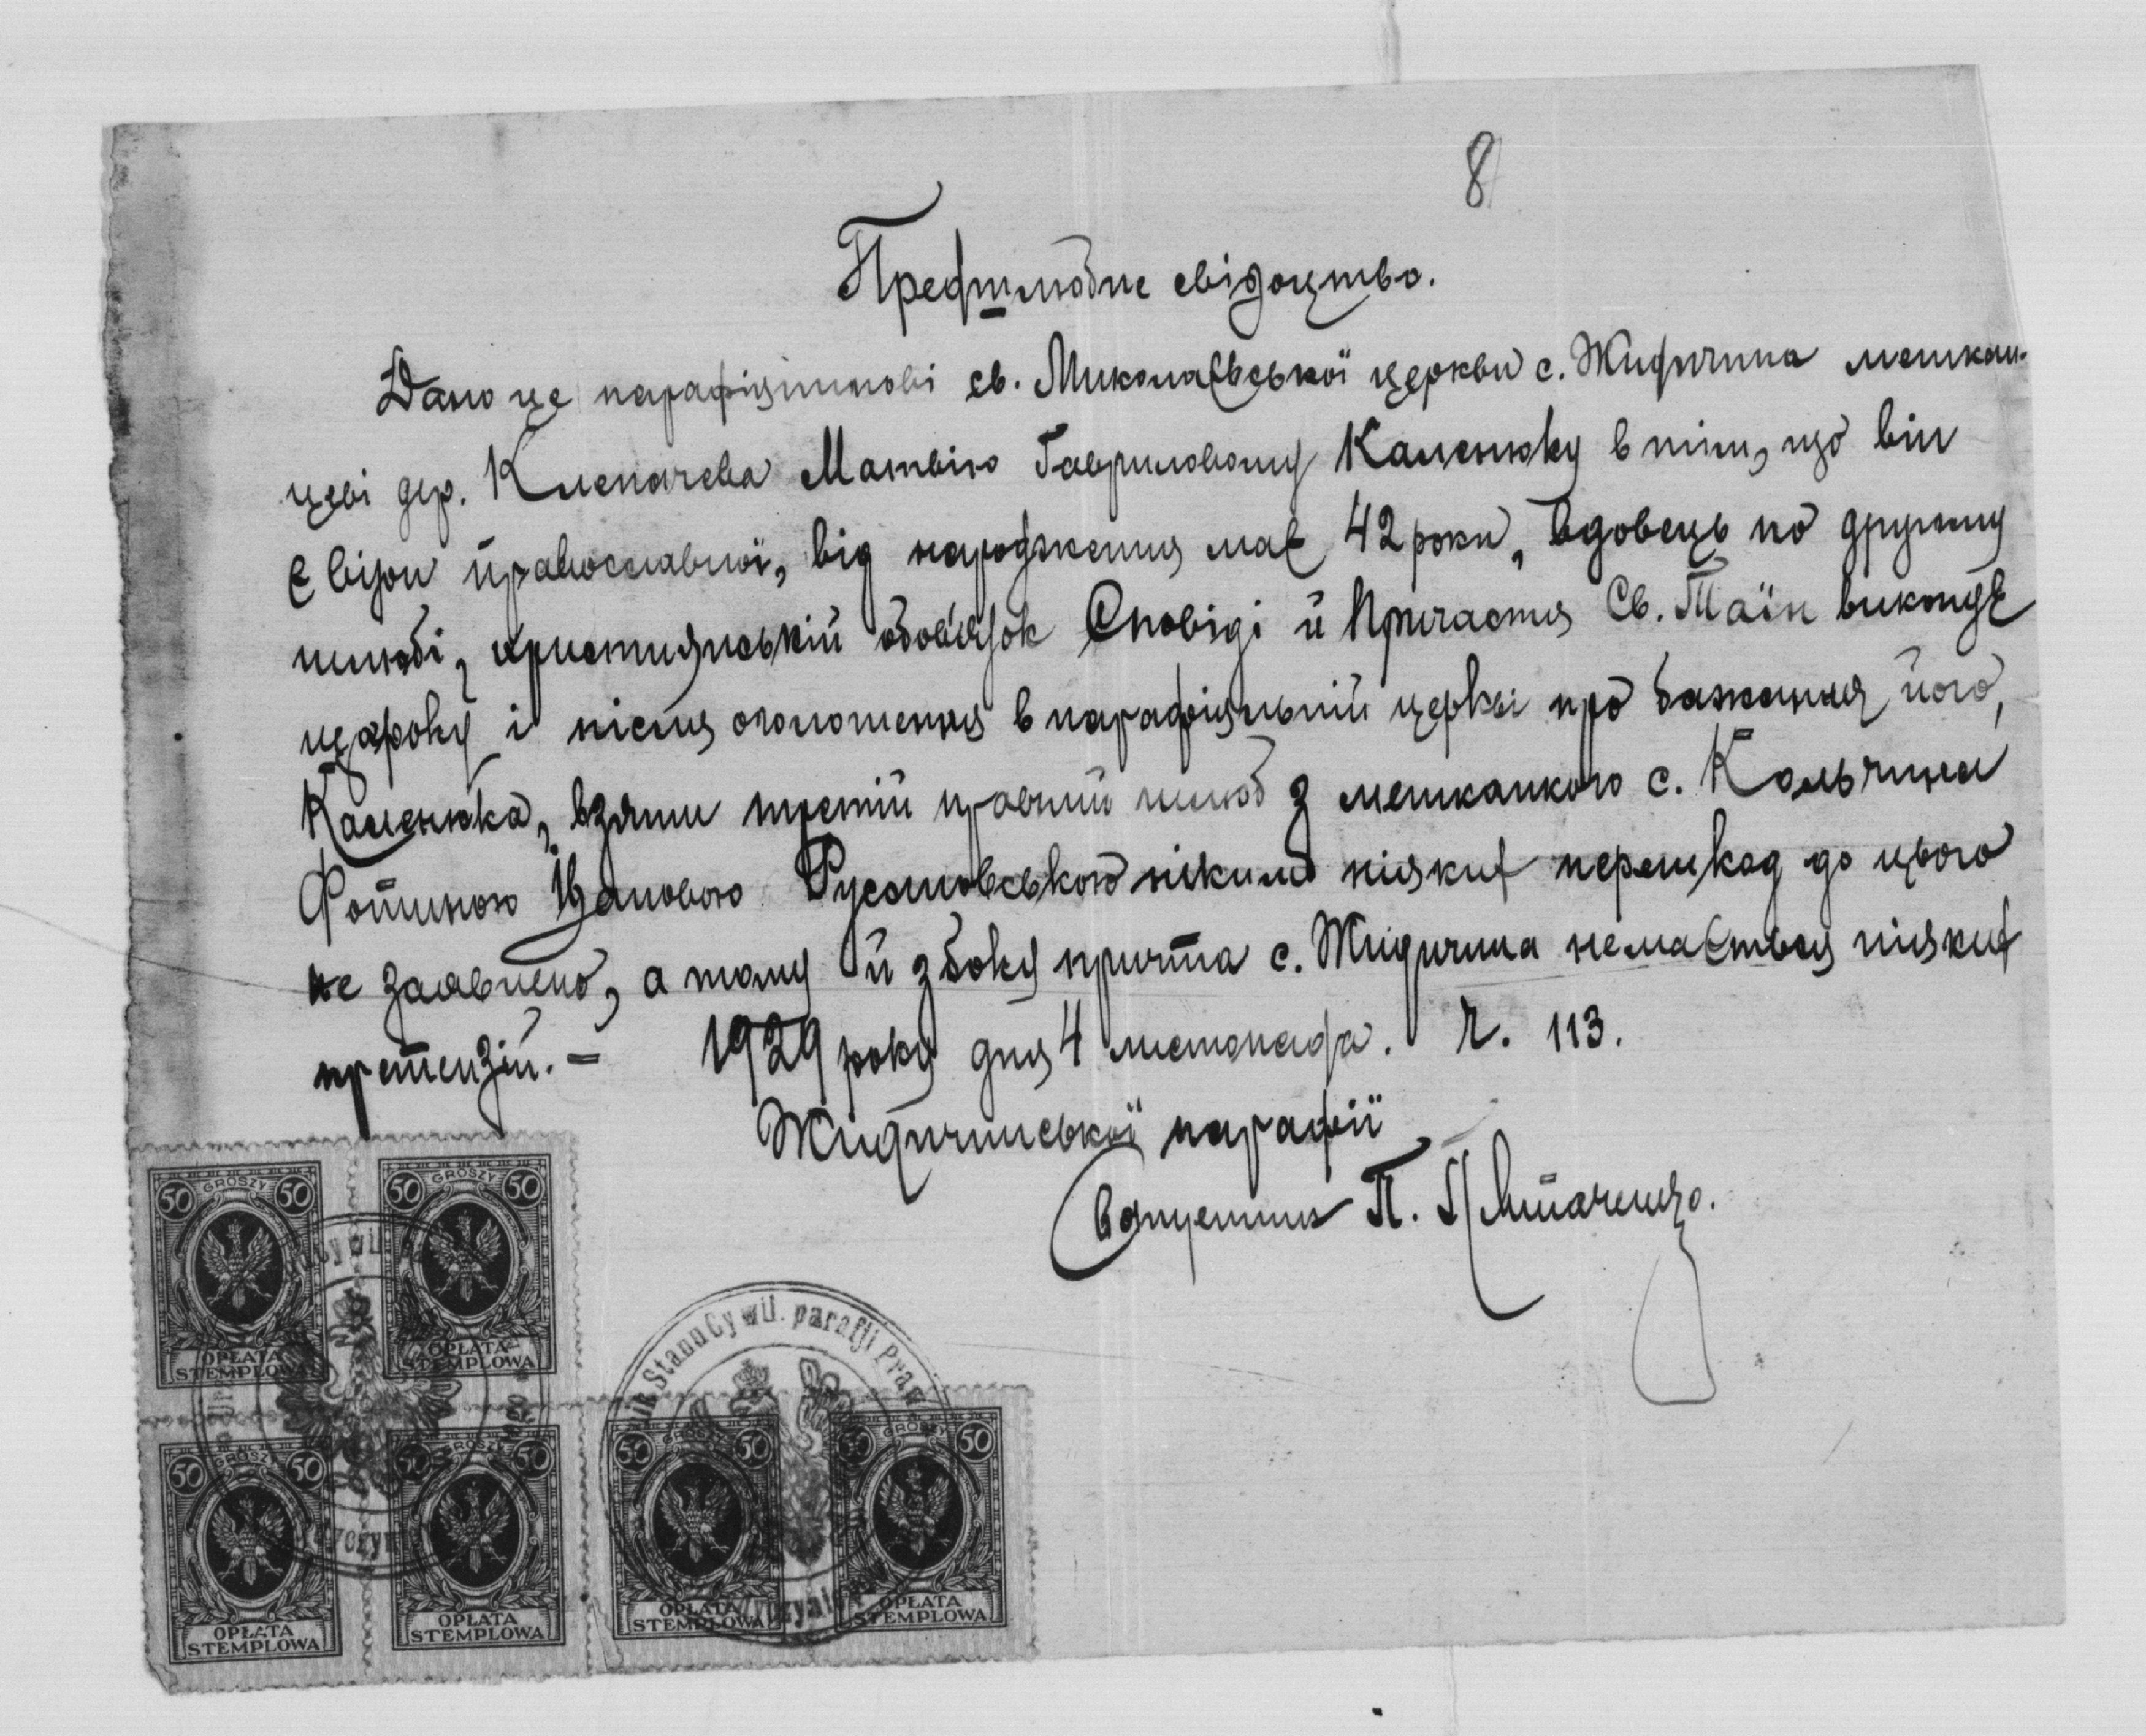 8
Предшлюбне свідоцтво.
Дано це парафіянинові св. Миколаєвської церкви с. Жидичина мешкан-
цеві дер. Клепачева Матвію Гавриловому Каленюку в тім, що він
є віри православної, від народження має 42 роки, вдовець по другому
шлюбі, християнський обовязок Сповіді й Причастя Св. Таїн виконує
щороку і після оголошення в парафіяльній церкві про бажання його,
Каленюка, взяти третій правний шлюб з мешканкою с. Кольчина
Фотиною Івановою Русановською ніким ніяких перешкод до цього
не заявлено, а тому й з боку причта с. Жидичина немається ніяких
претензій. – 1929 року дня 4 листопада. Ч. 113.
Жидичинської парафії
Вапуетник П.
50 GROSZY 50
OPŁATA
STEMPLOWA
50 GROSZY 50
OPŁATA
STEMPLOWA
50 GROSZY 50
OPŁATA
STEMPLOWA
50 GROSZY 50
OPŁATA
STEMPLOWA
50 GROSZY 50
OPŁATA
STEMPLOWA
50 GROSZY 50
OPŁATA
STEMPLOWA
Stanu Cywil. parafji Praw